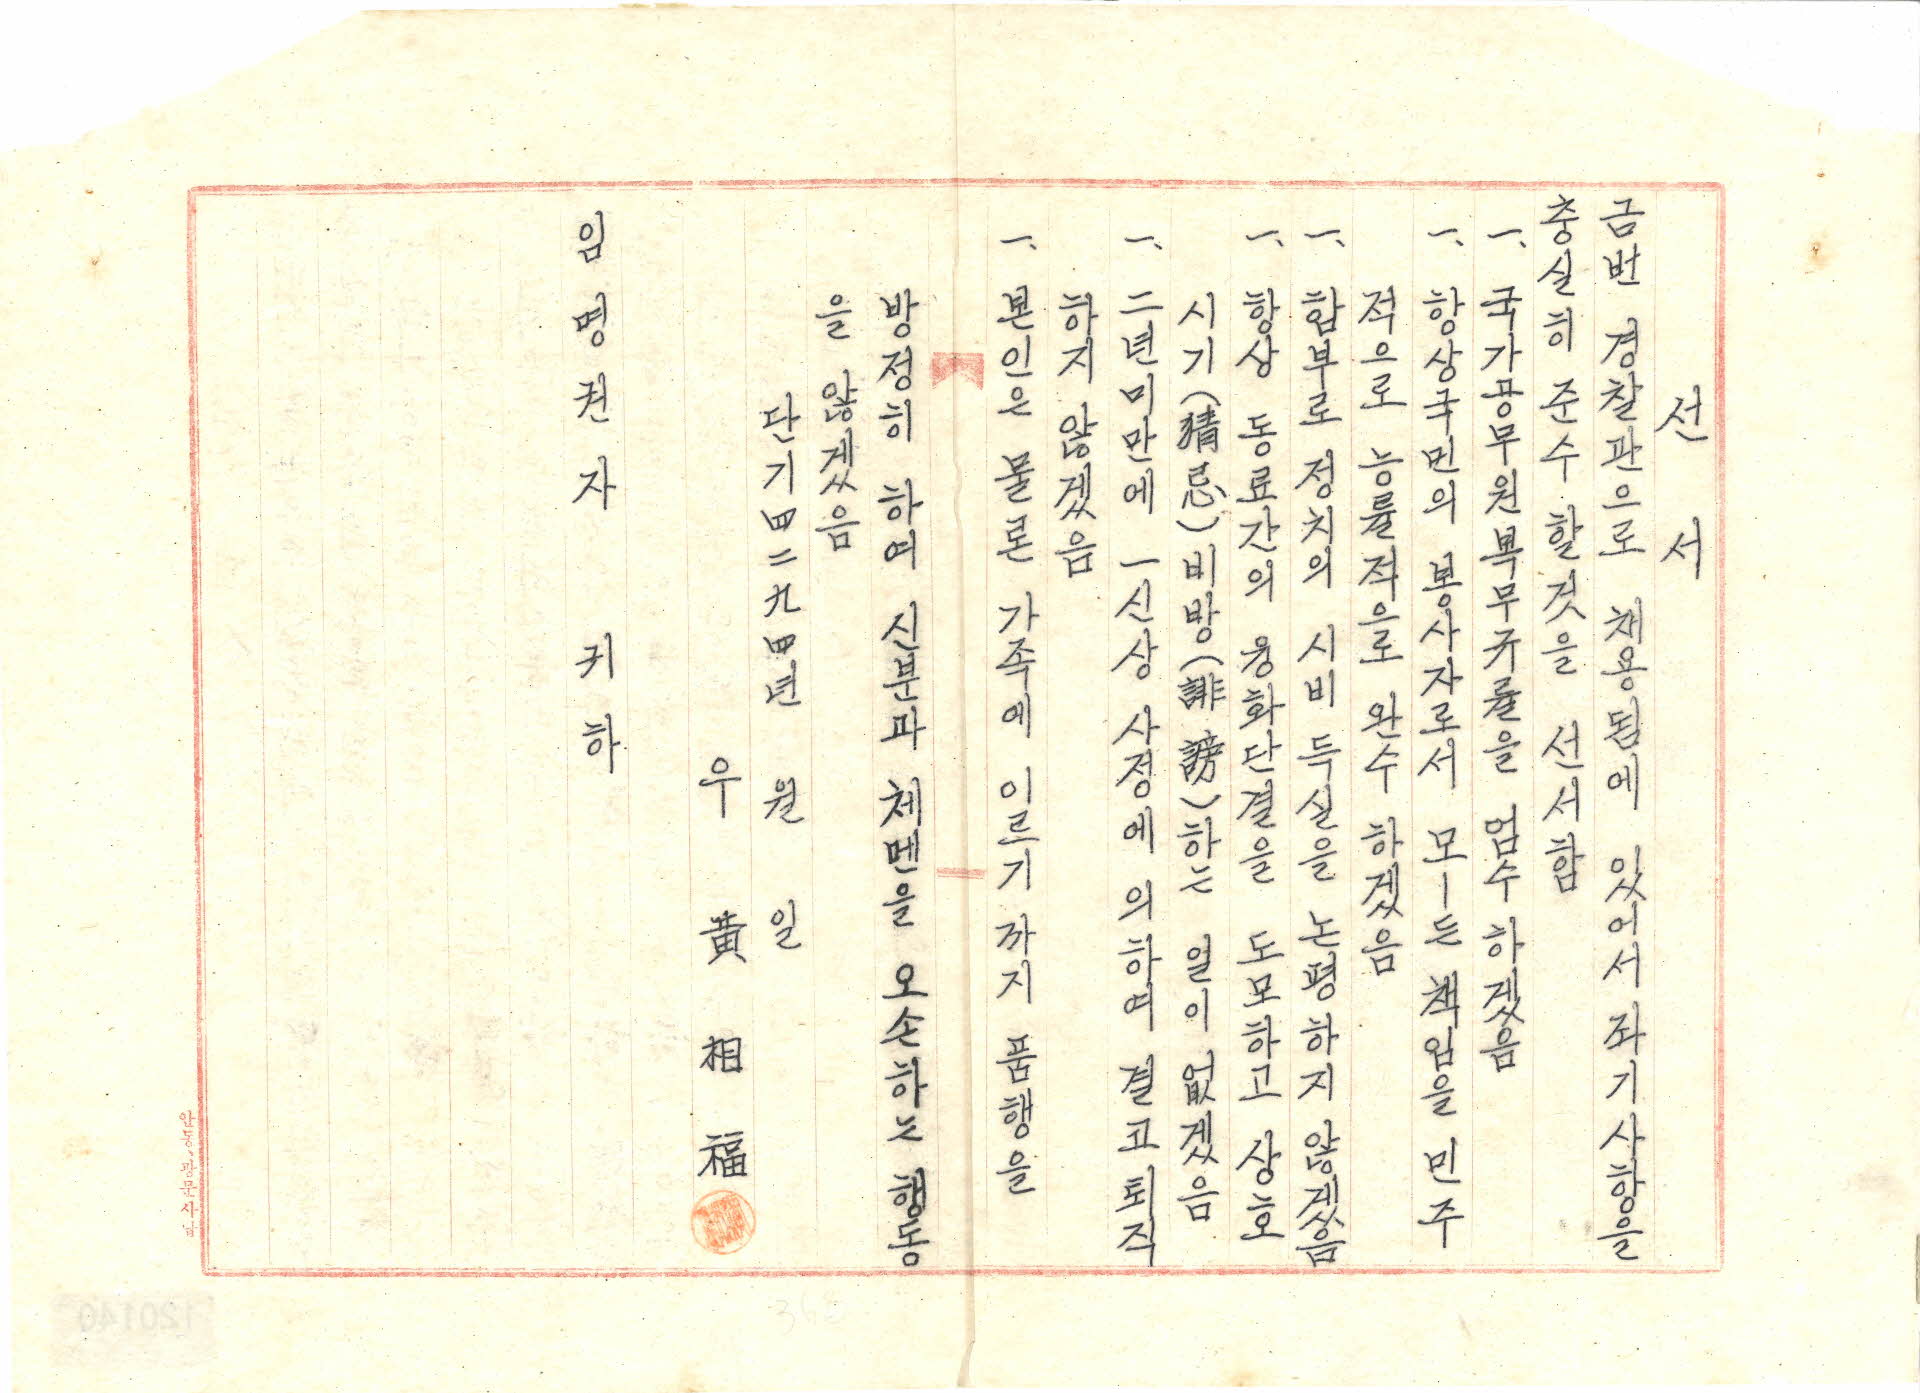 선서
금번 경찰관으로 채용됨에 있어서 좌기사항을
충실히 준수 할것을 선서함
一、국가공무원복무규률을 엄수하겠음
一、항상국민의 봉사자로서 모ー든 책임을 민주
적으로 능률적으로 완수 하겠음
一、함부로 정치의 시비 득실을 논평하지 않겠음
一、항상 동료간의 융화단결을 도모하고 상호
시기(猜忌)비방(誹謗)하는 일이 없겠음
一、二년미만에 一신상 사정에 의하여 결고퇴직
하지 않겠음
一、본인은 물론 가족에 이르기까지 품행을
방정히 하여 신분과 체멘을 오손하는 행동
을 않겠음
단기四二九四년 월 일
우 黄相福
임명권자 귀하
안동광문사납
120140